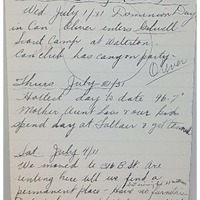 Wed. July 1/31 Dominion Day
in Can. Oliver enters
Scout Camp at
Can Club has canyon party.
Oliver
Thurs July 2/31
Hottest day to date 96.7°
Mother Aunt & our kids
spend day at Saltair & get
Sat July 4/31
We moved to B St. Are
renting here till we find a
permanent place - Have no furniture